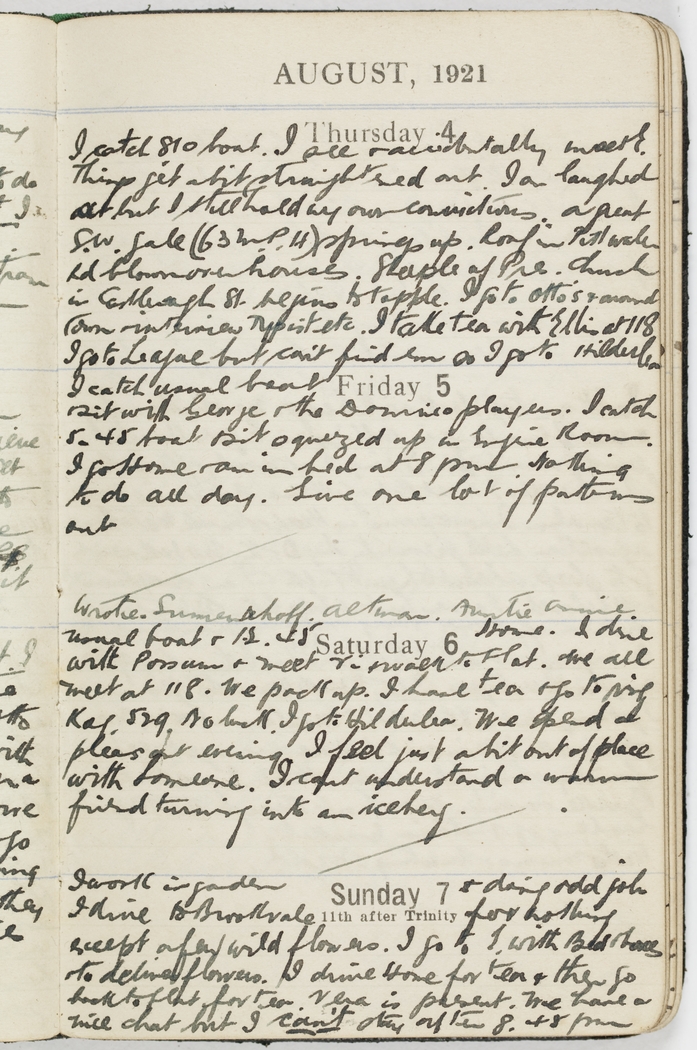 AUGUST, 1921
Thursday 4
I catch 810 boat. I see & accidentally meet E.
things get a bit straightened out. I am laughed
at but I still hold my own convictions. a great
S.W. gale (63 m.P.H) springs up. Roof in Pittwater
Rd blown over houses. Steeple of Pres. Church
in Castlereagh St. begins to topple. I go to Otto's & around
Town & interview Typist etc. I take tea with Ellis at 118
I go to League but can't find em so I go to Hilderlea
I catch usual boat
Friday 5
& sit with George & the Domino players. I catch
5.45 boat & sit squeezed up in Engine Room.
I go Home & am in bed at 8 pm Nothing
to do all day. Give one lot of patterns
out
Wrote. altman. Auntie annie.
usual boat & 12.45 Home. I drive
Saturday 6
with Possum & meet V. & walk to Flat. We all
meet at 118. We pack up. I have tea & go to
Kag. 529. No luck. I go to Hilderlea. We spend a
pleasant evening. I feel just a bit out of place
with someone. I can't understand a warm
friend turning into an iceberg.
I work in garden & doing odd jobs
Sunday 7
11th after Trinity
I drive to Brookvale for nothing
except a few wild flowers. I go to with
& to deliver flowers. I drive Home for tea & then go
back to flat for tea. Vera is present. We have a
nice chat but I can't stay after 8.48 pm